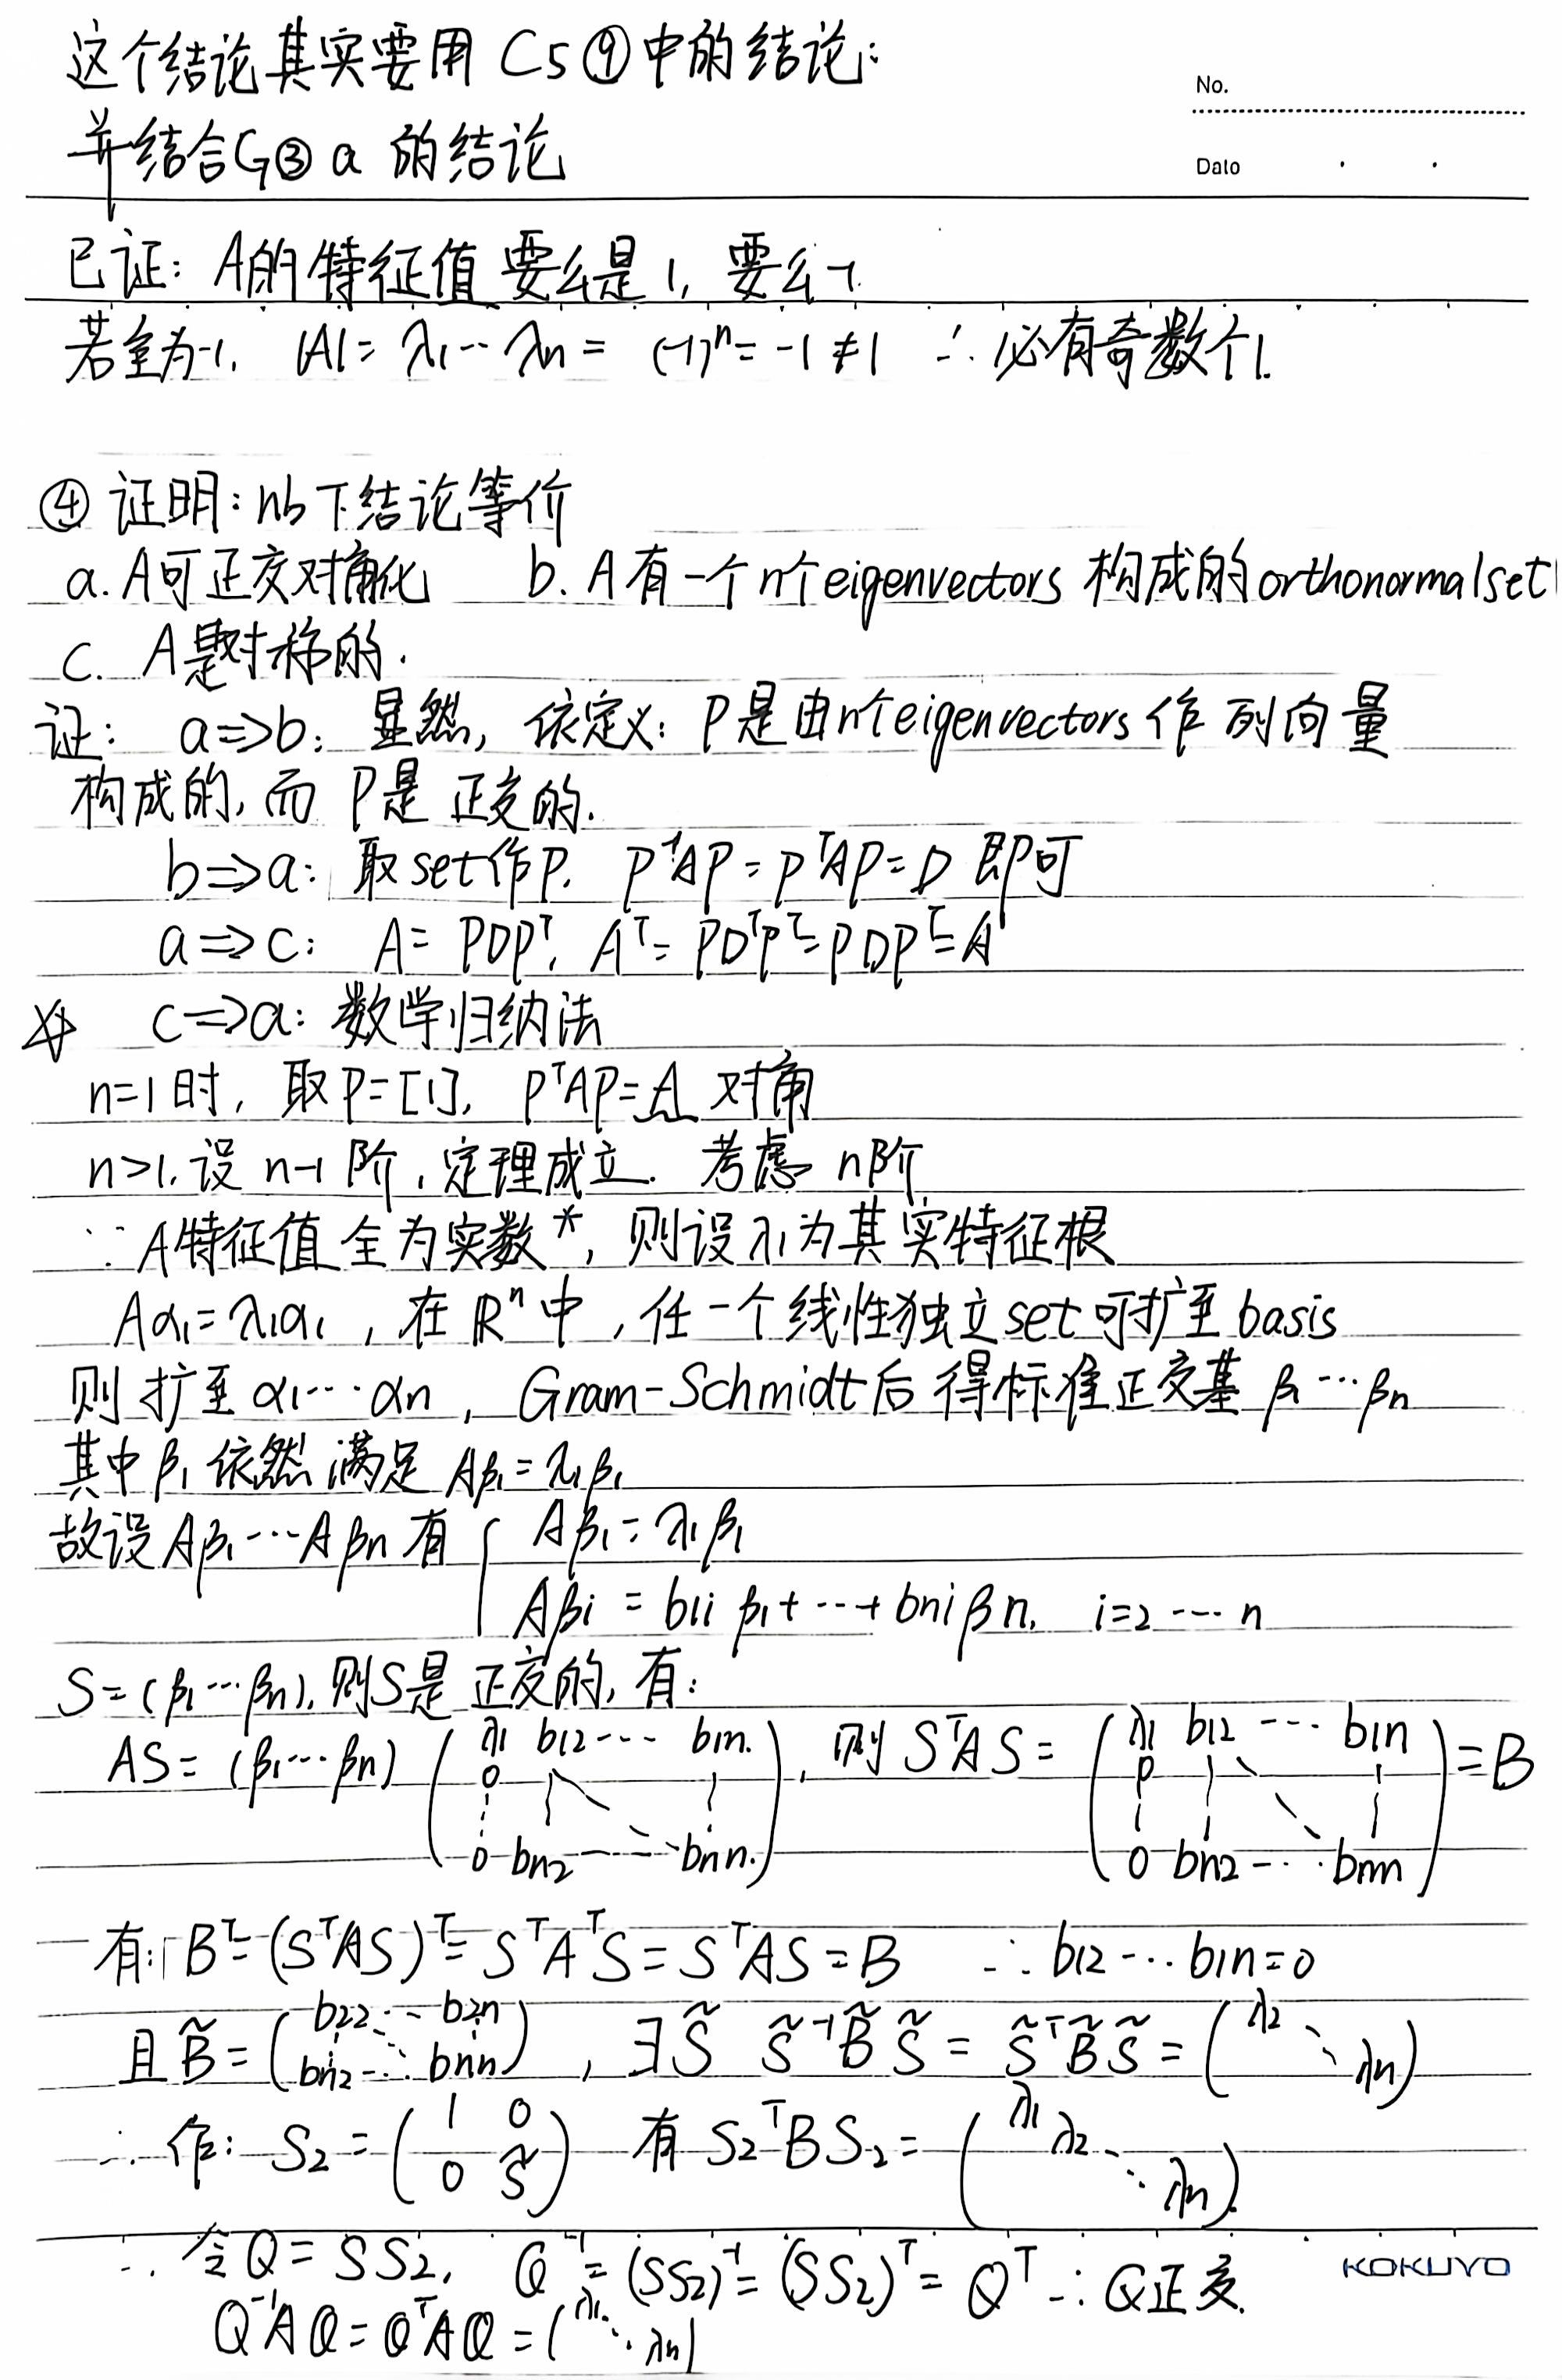 这个结论其实要用 C5⑨中的结论:
并结合G③a 的结论
No.
Date
已证: A的特征值要么是1, 要么-1.
若全为-1, |A|= λ1…λn = (-1)ⁿ = -1 ≠ 1 ∴必有奇数个1.
④ 证明:以下结论等价
a. A可正交对角化 b. A有一个n个eigenvectors 构成的orthonormal set
c. A是对称的.
证: a⇒b: 显然, 依定义: P是由n个eigenvectors作列向量
构成的, 而 P是 正交的.
b⇒a: 取set作P. P⁻¹AP = PᵀAP = D 即可
a⇒c: A = PDPᵀ, Aᵀ = PDᵀPᵀ = PDPᵀ = A
☆ c⇒a: 数学归纳法
n=1时, 取P=[1], PᵀAP=A 对角
n>1, 设 n-1 阶, 定理成立. 考虑 n阶
∵ A特征值全为实数*, 则设λ1为其实特征根
Aα1=λ1α1, 在 ℝⁿ中, 任一个线性独立set可扩至basis
则扩至α1…αn, Gram-Schmidt后得标准正交基 β1…βn
其中β1依然满足 Aβ1=λ1β1
故设Aβ1…Aβn有 { Aβ1=λ1β1
Aβi = b1iβ1+…+bniβn, i=2…n
S=(β1…βn), 则S是正交的, 有:
AS= (β1…βn) ( λ1 b12 … b1n ; 0 ⋮ ⋱ ⋮ ; 0 bn2 … bnn ), 则 SᵀAS = ( λ1 b12 … b1n ; 0 ⋮ ⋱ ⋮ ; 0 bn2 … bnn ) = B
有: Bᵀ = (SᵀAS)ᵀ = SᵀAᵀS = SᵀAS = B ∴ b12…b1n=0
且 B̃ = ( b22 … b2n ; bn2 … bnn ), ∃S̃ S̃⁻¹B̃S̃ = S̃ᵀB̃S̃ = ( λ2 ⋱ λn )
∴ 作: S2 = ( 1 0 ; 0 S̃ ) 有 S2ᵀBS2 = ( λ1 λ2 ⋱ λn )
∴ 令Q=SS2, Q⁻¹ = (SS2)⁻¹ = (SS2)ᵀ = Qᵀ ∴ Q正交.
Q⁻¹AQ = QᵀAQ = ( λ1 ⋱ λn )
KOKUYO